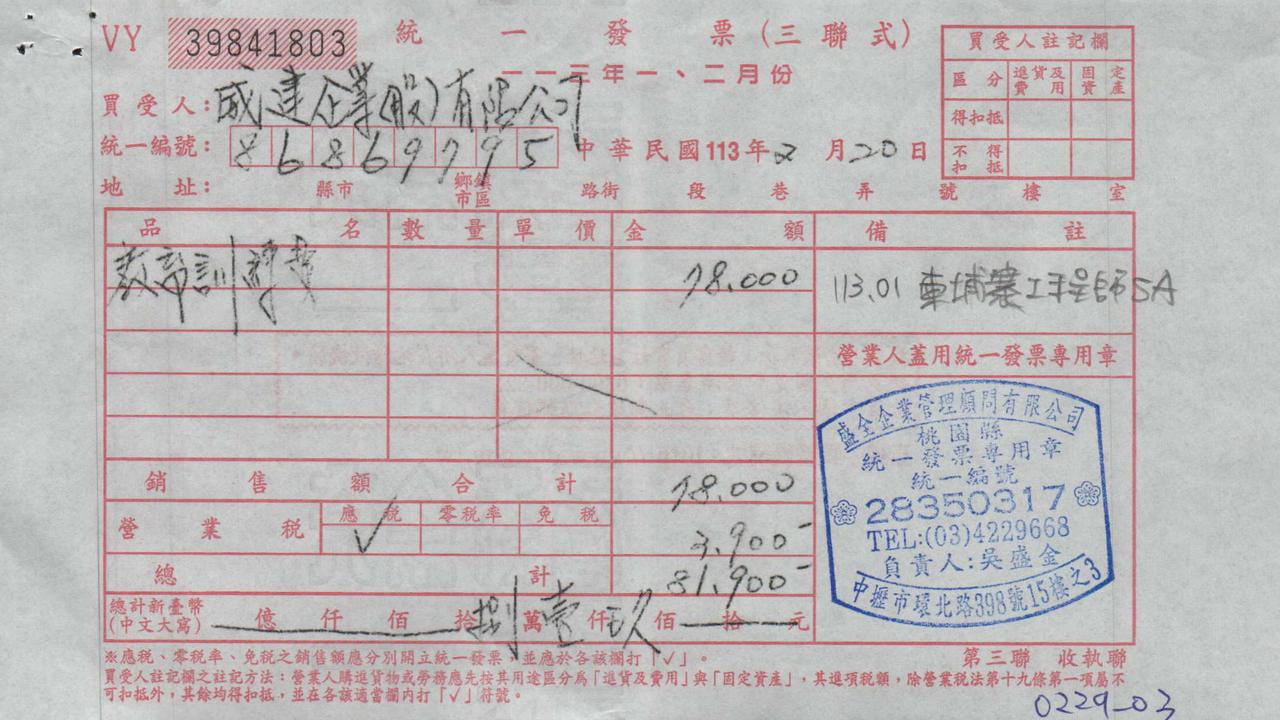 VY 39841803 統一發票(三聯式)
一一三年一、二月份
買受人：威達企業(股)有限公司
統一編號：86869795 中華民國113年2月20日
地址： 縣市 鄉鎮市區 路街 段 巷 弄 號 樓 室
買受人註記欄
區分 進貨及費用 固定資產
得扣抵
不得扣抵
品名 數量 單價 金額 備註
教育訓練費 78.000 113.01 柬埔寨工程師SA
營業人蓋用統一發票專用章
銷售額合計 78.000
營業稅 應稅 零稅率 免稅
√ 3.900-
總計 81.900-
總計新臺幣(中文大寫) 億 仟 佰 拾 捌 萬 壹 仟 玖 佰 拾 元
盛全企業管理顧問有限公司
桃園縣
統一發票專用章
統一編號
28350317
TEL:(03)4229668
負責人:吳盛金
中壢市環北路398號15樓之3
※應稅、零稅率、免稅之銷售額應分別開立統一發票，並應於各該欄打「√」。
第三聯 收執聯
買受人註記欄之註記方法：營業人購進貨物或勞務應先按其用途區分為「進貨及費用」與「固定資產」，其進項稅額，除營業稅法第十九條第一項屬不
可扣抵外，其餘均得扣抵，並在各該適當欄內打「√」符號。
0229-03